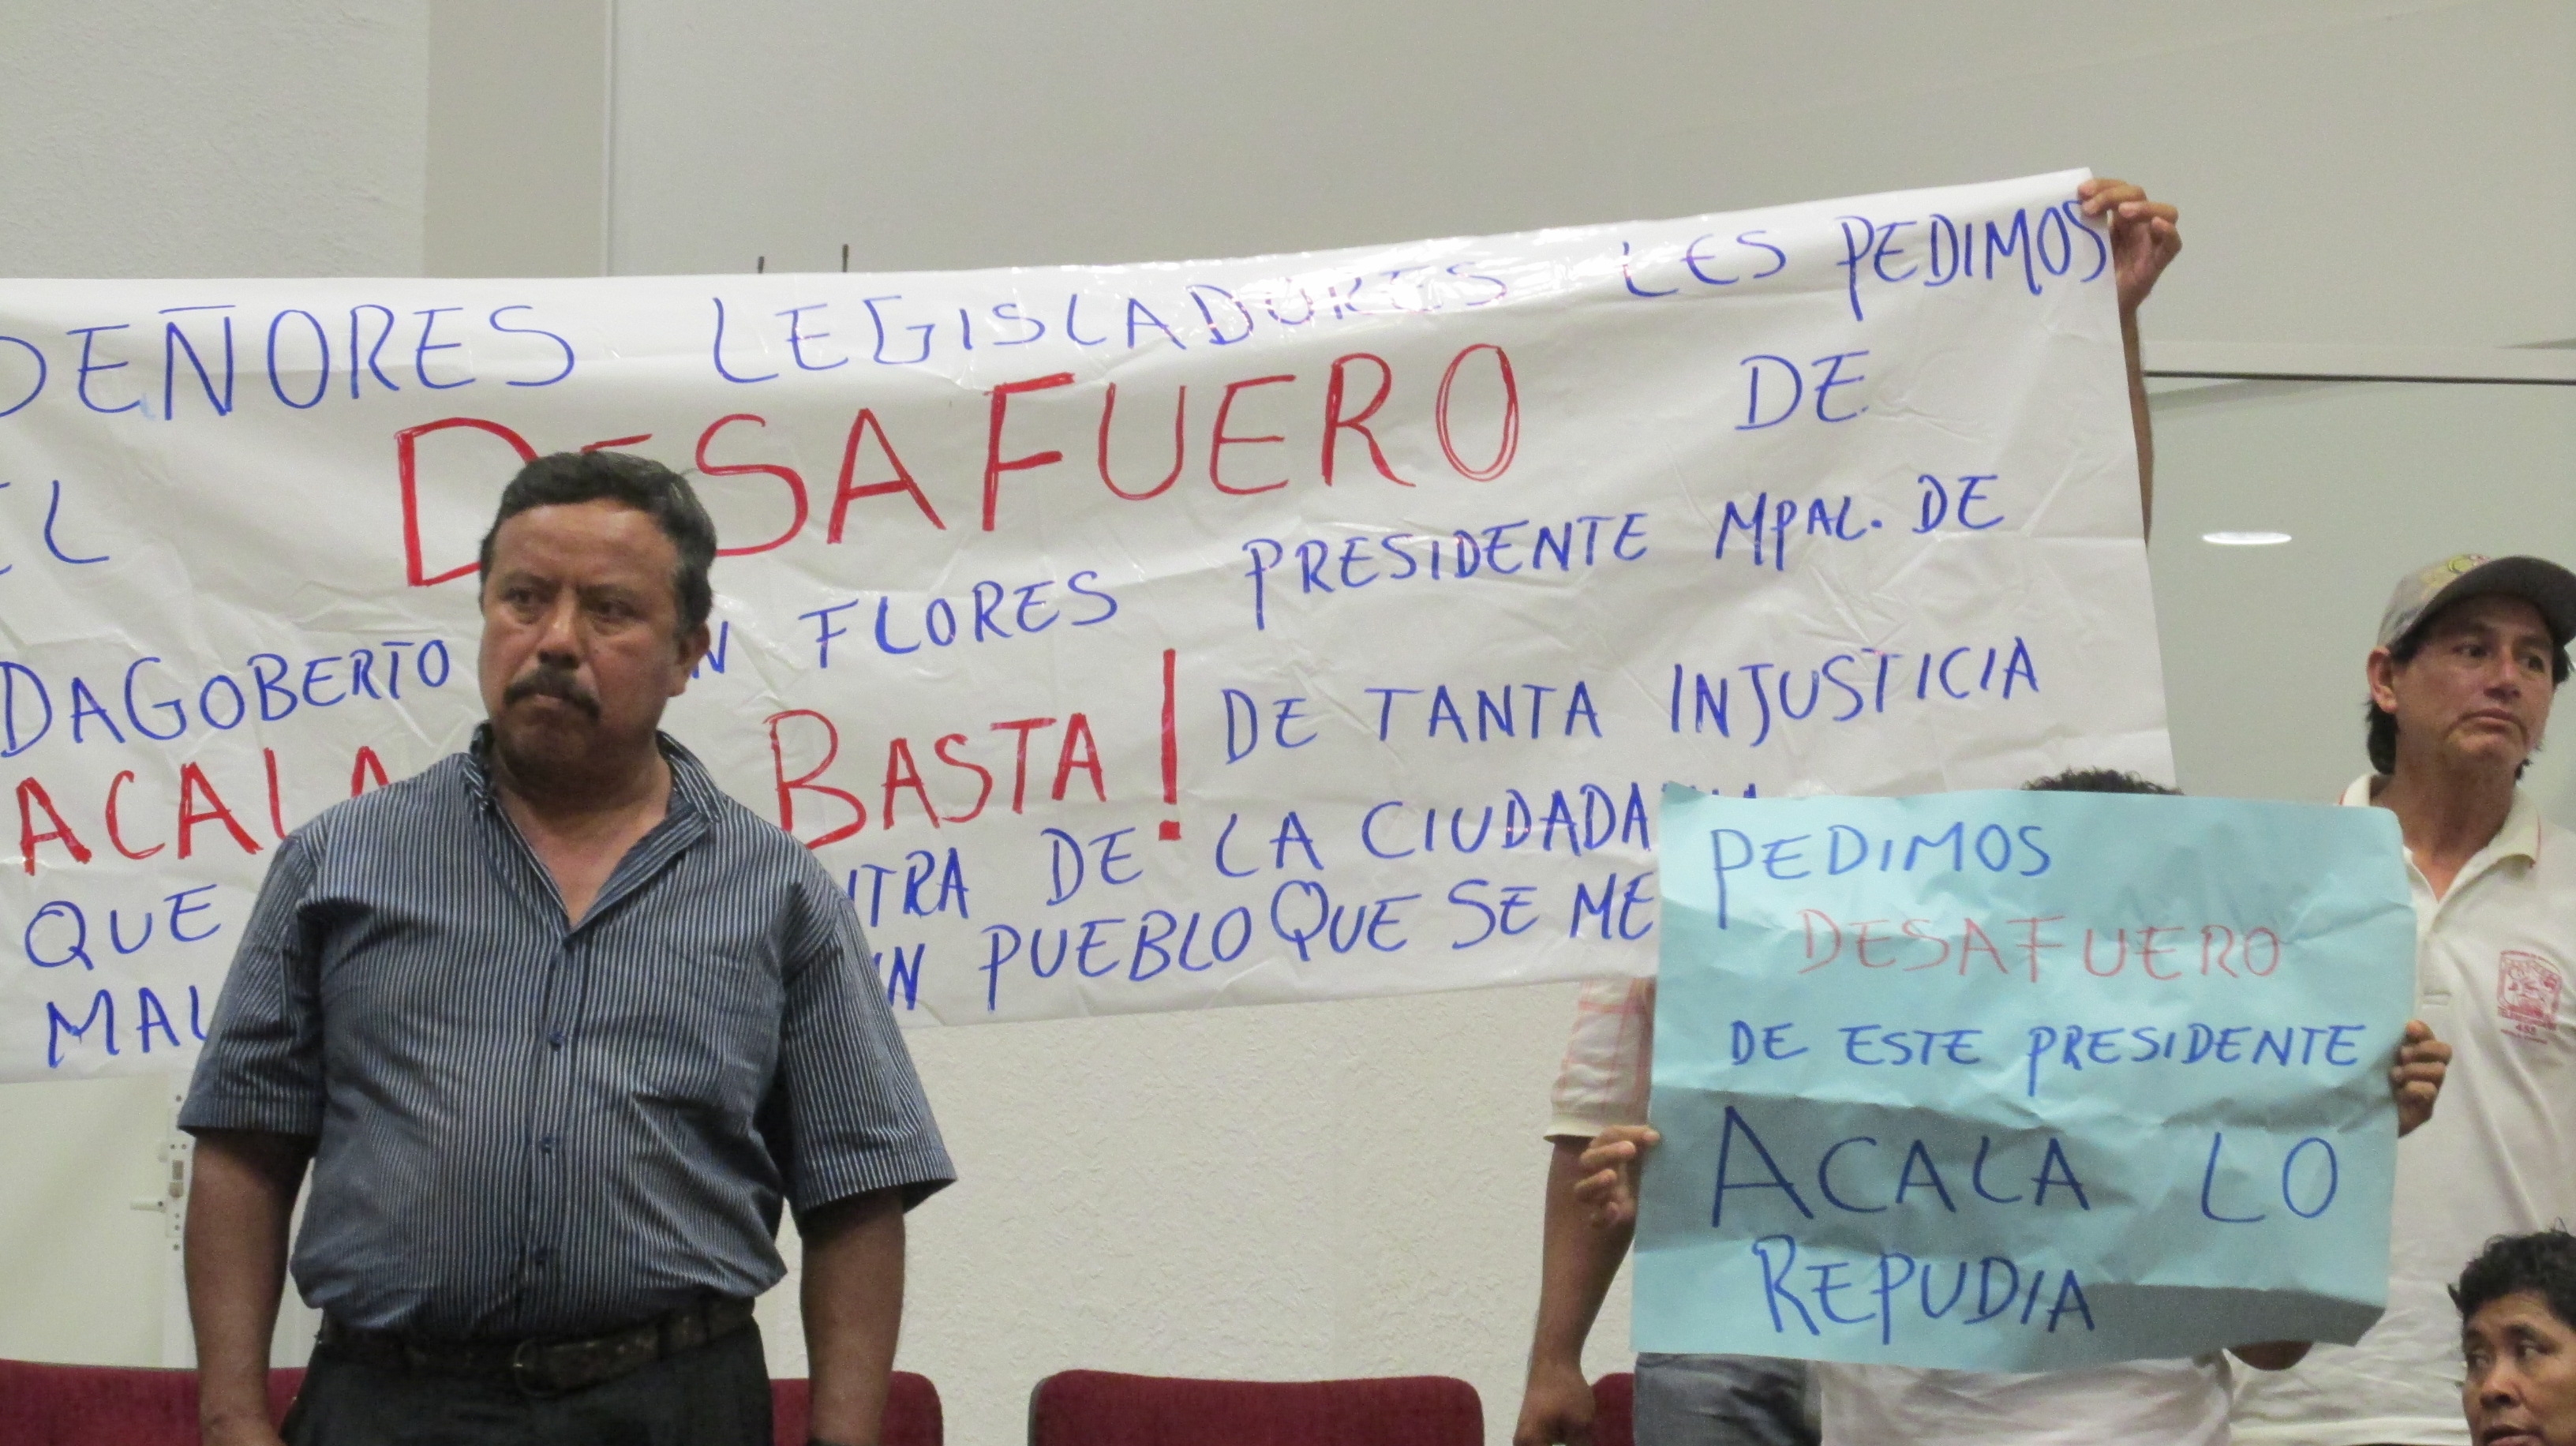 SEÑORES LEGISLADORES LES PEDIMOS
EL DESAFUERO DE
DAGOBERTO FLORES PRESIDENTE MPAL. DE
ACALA BASTA! DE TANTA INJUSTICIA
QUE DE LA CIUDADANIA
PUEBLO QUE SE
PEDIMOS
DESAFUERO
DE ESTE PRESIDENTE
ACALA LO
REPUDIA